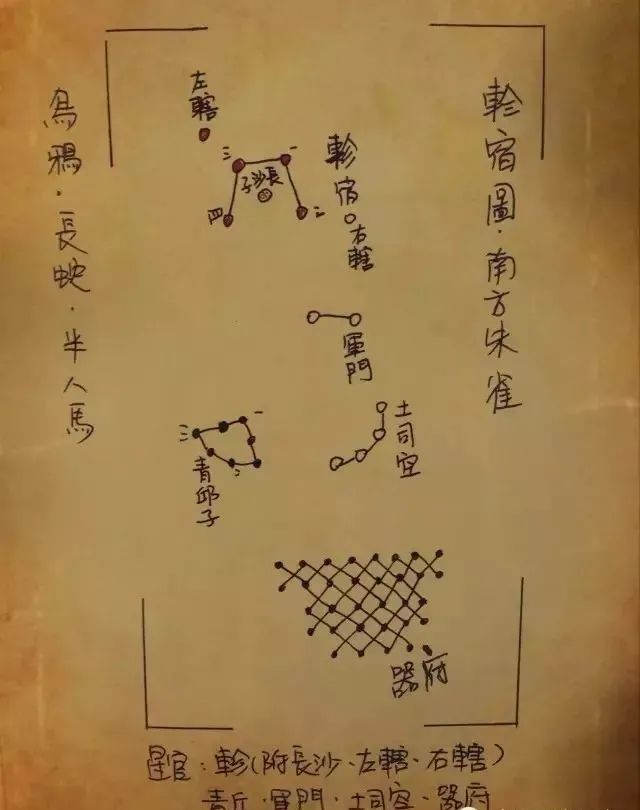 軫宿圖·南方朱雀
烏鴉·長蛇·半人馬
左轄
三
一
長沙子
四
二
軫宿
右轄
軍門
土司空
一
三
二
青邱子
器府
星官：軫(附長沙·左轄·右轄)
青丘·軍門·土司空·器府